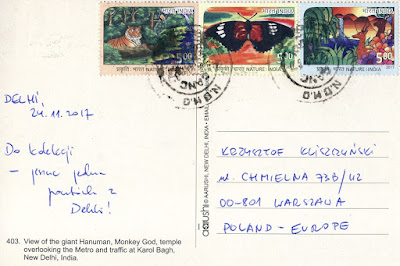 भारत INDIA
भारत INDIA
भारत INDIA
5.00
5.00
5.00
प्रकृति - भारत NATURE - INDIA
प्रकृति - भारत NATURE - INDIA
प्रकृति - भारत NATURE - INDIA
DELHI,
24.11.2017
Do kolekcji
– jeszcze jedna
pocztówka z
Delhi!
KRZYSZTOF KLISZCZYŃSKI
ul. CHMIELNA 73B/42
00-801 WARSZAWA
POLAND - EUROPE
aarushi © AARUSHI, NEW DELHI, INDIA
403. View of the giant Hanuman, Monkey God, temple
overlooking the Metro and traffic at Karol Bagh,
New Delhi, India.